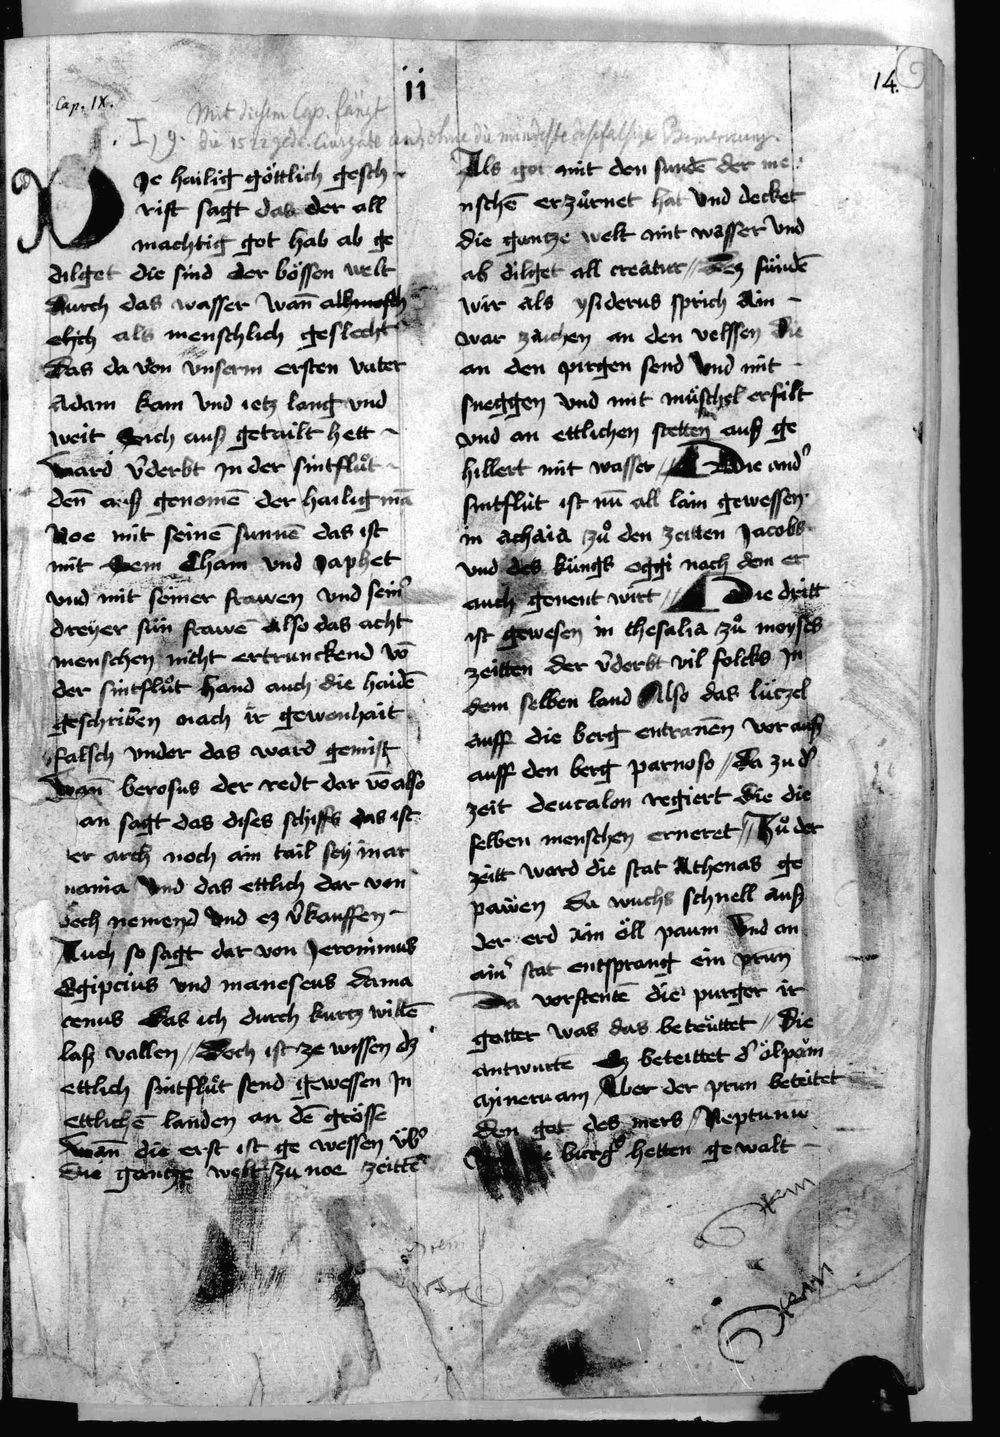 ii
14.
Cap. IX.
Mit diesem Cap. fängt
die 1522 gedr. Ausgabe an, ohne die mindeste desfalsige Bemerkung.
Die hailig göttlich gesch
rift sagt das der all
machtig got hab ab ge
dilget die sind der bössen welt
durch das wasser wan̄
als menschlich geslecht
das da von vnserm ersten vater
Adam kam vnd ietz lang vnd
weit sich auß getailt hett
ward v̉derbt in der sintflůt
den̄ auß genomē der hailig mā
Noe mit seinē sunnē das ist
mit Sem Cham vnd Japhet
vnd mit seiner frawen vnd sein̉
dreyer sün frawē Also das acht
menschen nicht ertrunckend vō
der sintflůt hand auch die haidē
geschriben nach ir gewonhait
falsch vnder das ward gemist
wan̄ berosus der redt dar vō also
an sagt das dises schiffs das ist
er arch noch ain tail sey in ar
mania vnd das ettlich dar von
bech nemend vnd ez v̉kauffen
Auch so sagt dar von Jeronimus
Egipcius vnd maneseus dama
cenus das ich durch kurtz willē
laß vallen // Doch ist ze wissen dz
ettlich sintflůt send gewessen in
ettlichē landen an dē grösse
wan̄ die erst ist ge wessen üb̉
die gantze welt zu noe zeittē
Als got mit den sundē der me
nschē erzürnet hat vnd decket
die gantze welt mit wasser vnd
ab dilget all creatur // Dez fündē
wir als ysiderus sprich Ain
war zaichen an den velssen die
an den pirgen send vnd mit
sneggen vnd mit müschel erfilt
vnd an ettlichen stetten auß ge
hillert mit wasser // Die and̉
sintflůt ist nū all lain gewessen
in achaia zů den zeitten Jacobs
vnd des küngs oggi nach dem er
auch genent wirt // Die dritt
ist gewesen in thesalia zů moyses
zeitten der v̉derbt vil folcks in
dem selben land Also das lüczel
auff die berg entranēn vor auß
auff den berg parnoso // da zu d̉
zeit deucalon regiert die die
selben menschen erneret // Zů der
zeitt ward die stat Athenas ge
pawen da wuchs schnell auß
der erd ain öll paum vnd an
ain̉ stat entsprang ein prun
Da vorstentē die purger ir
gotter was das beteüttet // Die
antwurte dz beteittet d̉ ölpom
mineruam Aber der prun beteitet
den got des mers // Neptunū
die burg̉ hetten gewalt
Item
Item